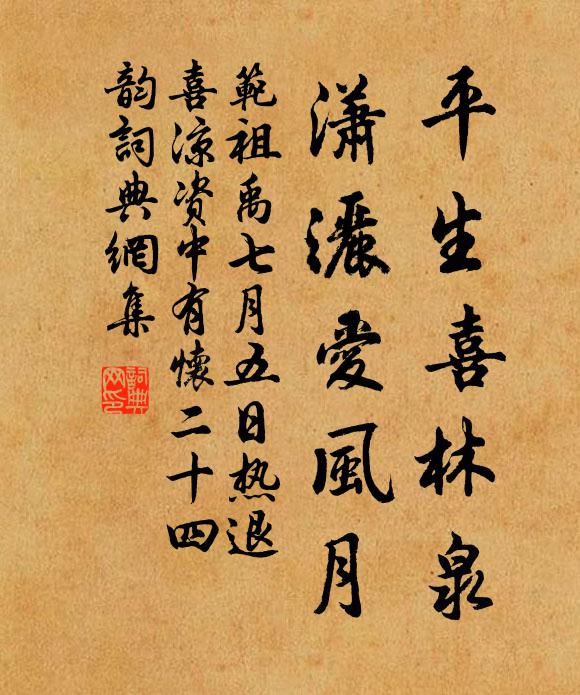 平生喜林泉
瀟灑愛風月
範祖禹七月五日热退
喜凉资中有懷二十四
韵詞典網集
詞典
网印